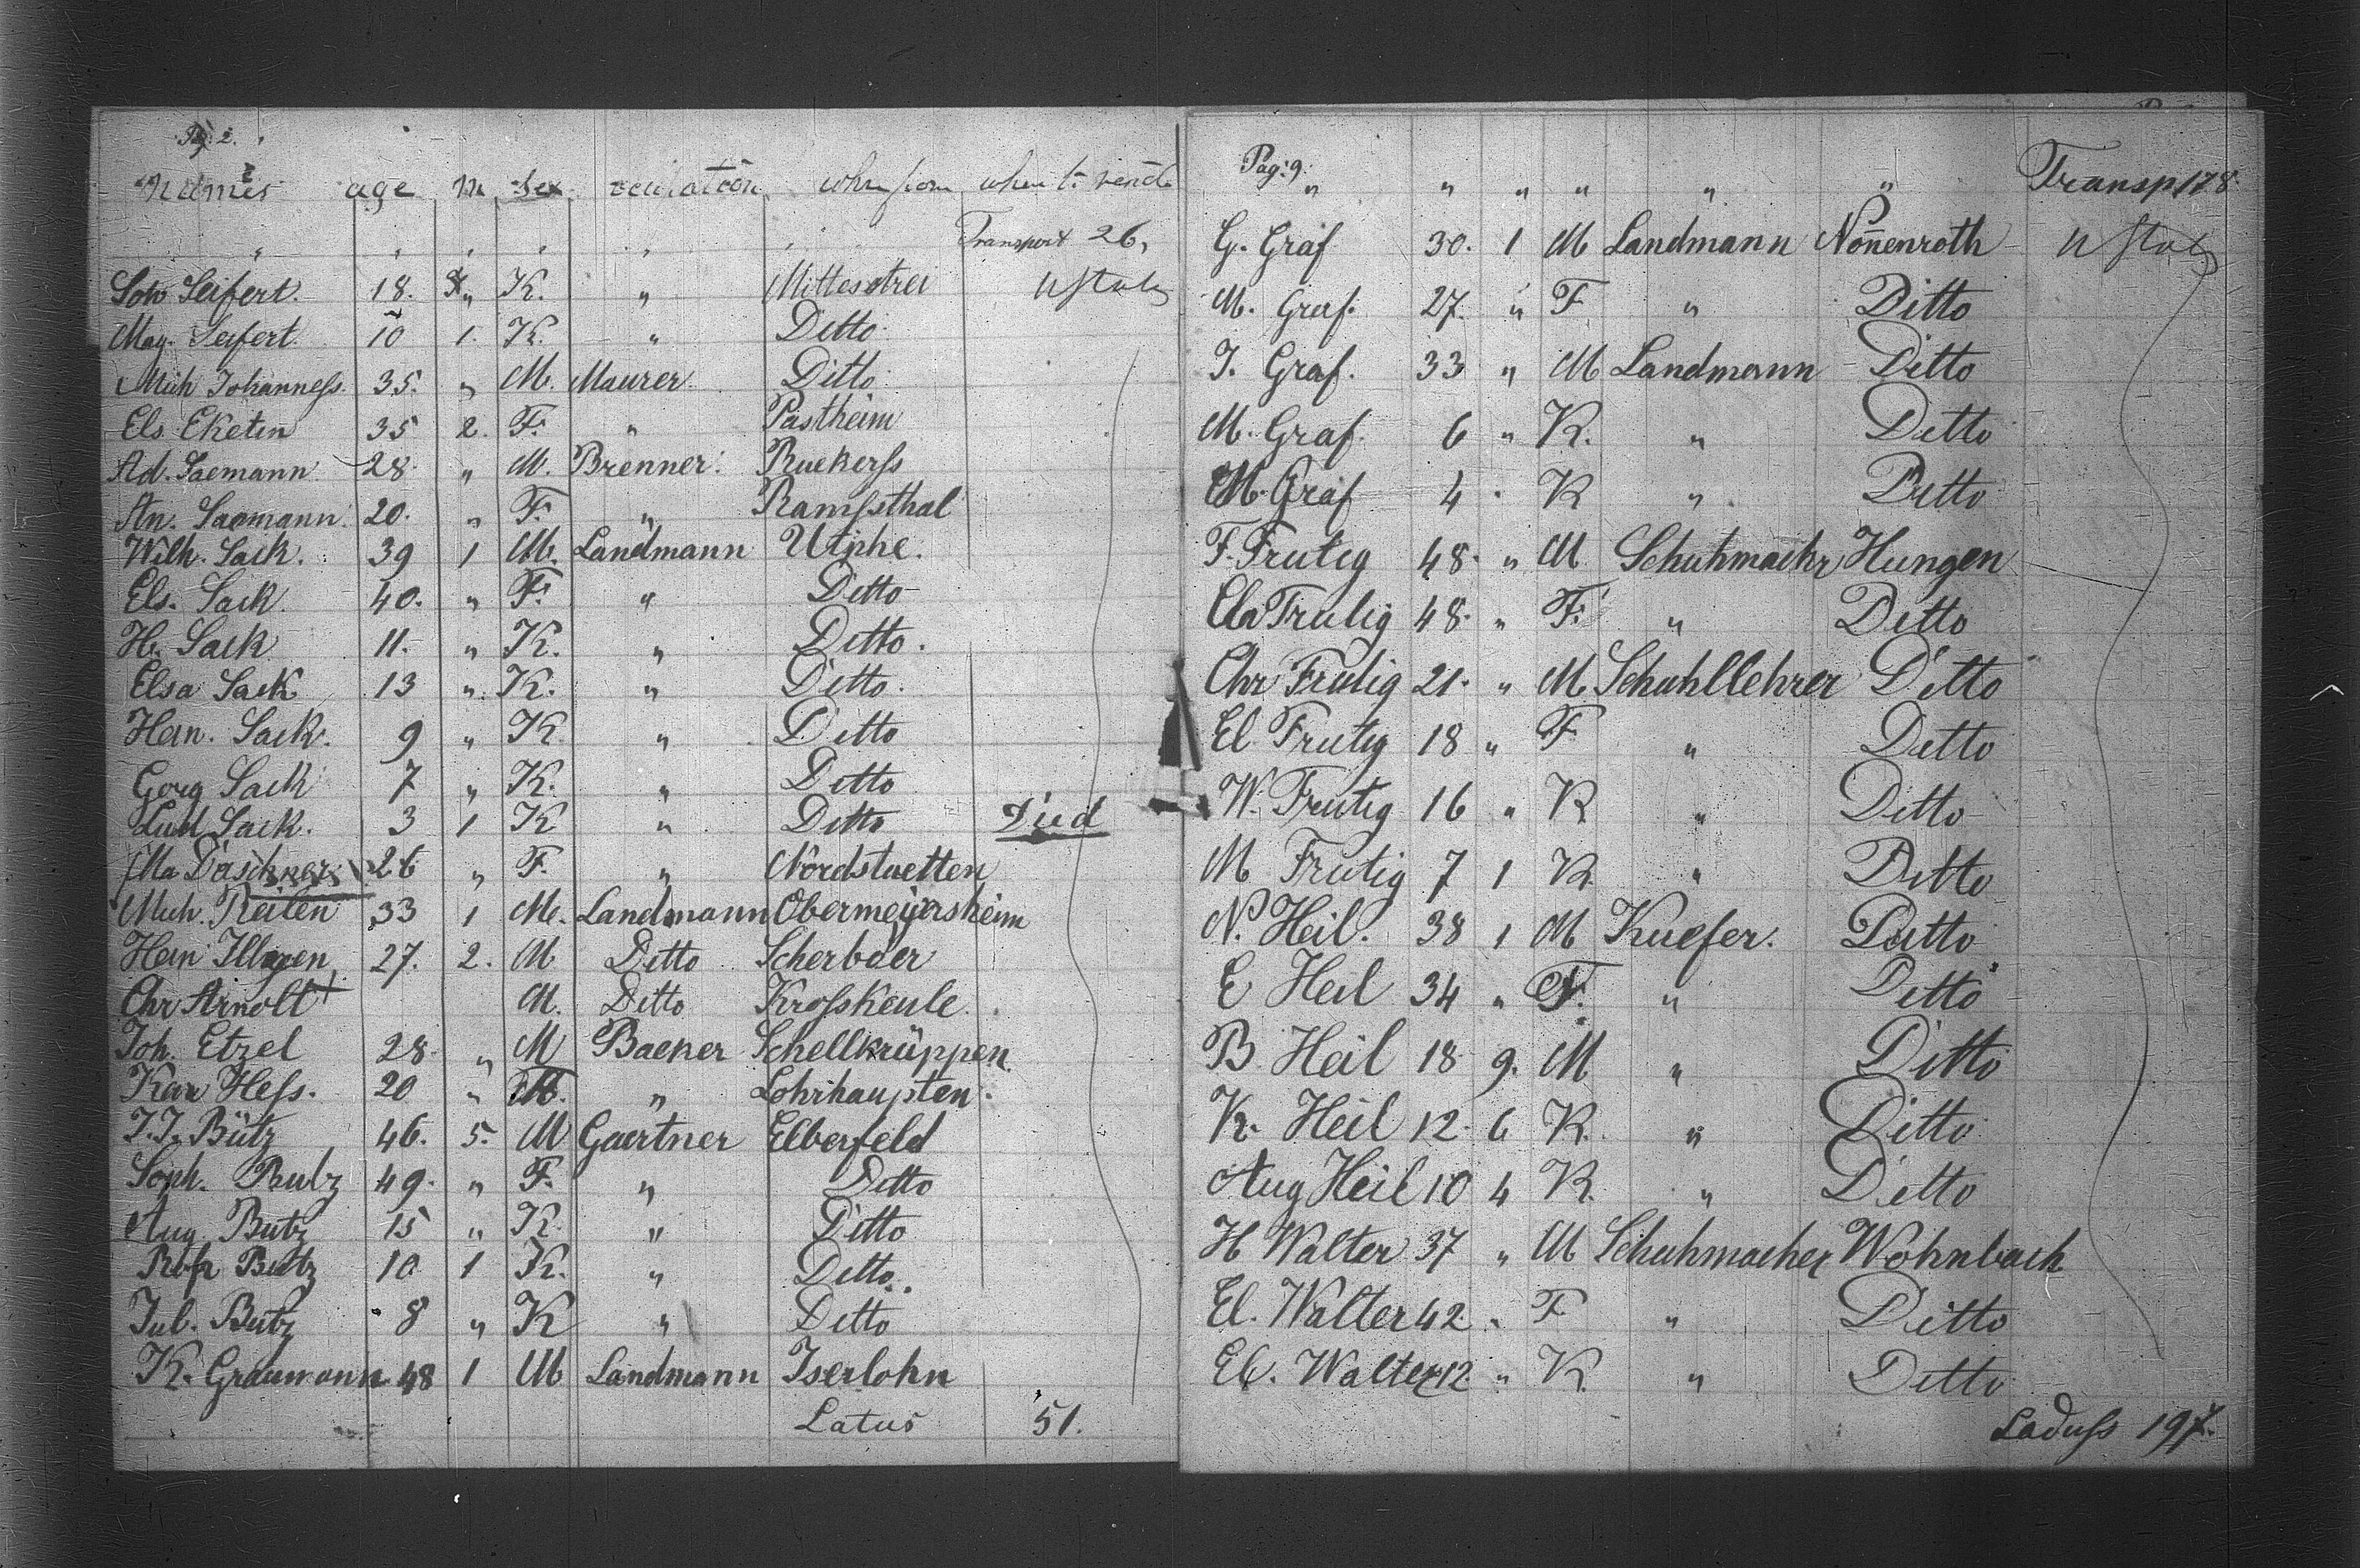 Pg: 2.
Names age m sex ocupation whre from when to rende
" " " " " " Transport 26,
Soh Seifert. 18. " K. " Mittesotrei U Stats
Mag. Seifert 10 1. K. " Ditto
Mich Johanness. 35. " M. Maurer. Ditto
Els. Eketin 35 2. F. " Pastheim
Ad. Saemann 28 " M. Brenner. Ruekerss
An. Saemann. 20. " F. " Ramssthal
Wilh. Sack. 39 1 M. Landmann Utphe.
Els. Sack 40. " F. " Ditto
H. Sack 11. " K. " Ditto.
Elsa Sack 13 ". K. " Ditto.
Hein. Sack. 9 " K. " Ditto
Georg Sack 7 " K. " Ditto
Lud Sack. 3 1 K " Ditto Died
Ma Daschner 26 " F. " Nordstuetten
Mich. Reilen 33 1 M. Landmann Obermeyersheim
Hein Illagen 27. 2. M Ditto Scherbder
Chr Arnolt + M. Ditto Krosskeule.
Joh. Etzel 28. " M Baeker Schellkrüppen
Kar Hess. 20 " M. " Lohrhaupten.
J. J. Bütz 46. 5. M Gaertner Elberfeld
Soph. Butz 49. " F. " Ditto
Aug. Butz 15 " K. " Ditto
Rosa Butz 10 1 K. " Ditto.
Jul. Butz 8 " K " Ditto
K. Graumann 48 1 M Landmann Iserlohn
Latus 51.
Pag: 9.
" " " " " " Transp 178
G. Graf 30. 1 M Landmann Nonnenroth U Stats
M. Graf. 27. " F " Ditto
J. Graf. 33 " M Landmann Ditto
M. Graf. 6 " K. " Ditto
M. Graf 4 " K " Ditto
F. Frutig 48. " M Schuhmachr Hungen
Ela Frutig 48. " F. " Ditto
Chr Frutig 21. " M Schuhllehrer Ditto
El Frutig 18 " F " Ditto
W. Frutig 16 " K " Ditto
M Frutig 7 1 K. " Ditto
N. Heil. 38 1 M Kuefer. Ditto
E Heil 34 " F. " Ditto
B Heil 18 9. M " Ditto
K. Heil 12. 6 K. " Ditto
Aug Heil 10 4 K. " Ditto
H Walter 37 " M Schuhmacher Wohnbach
El. Walter 42. " F " Ditto
El. Walter 12 " K. " Ditto
Laduss 197.